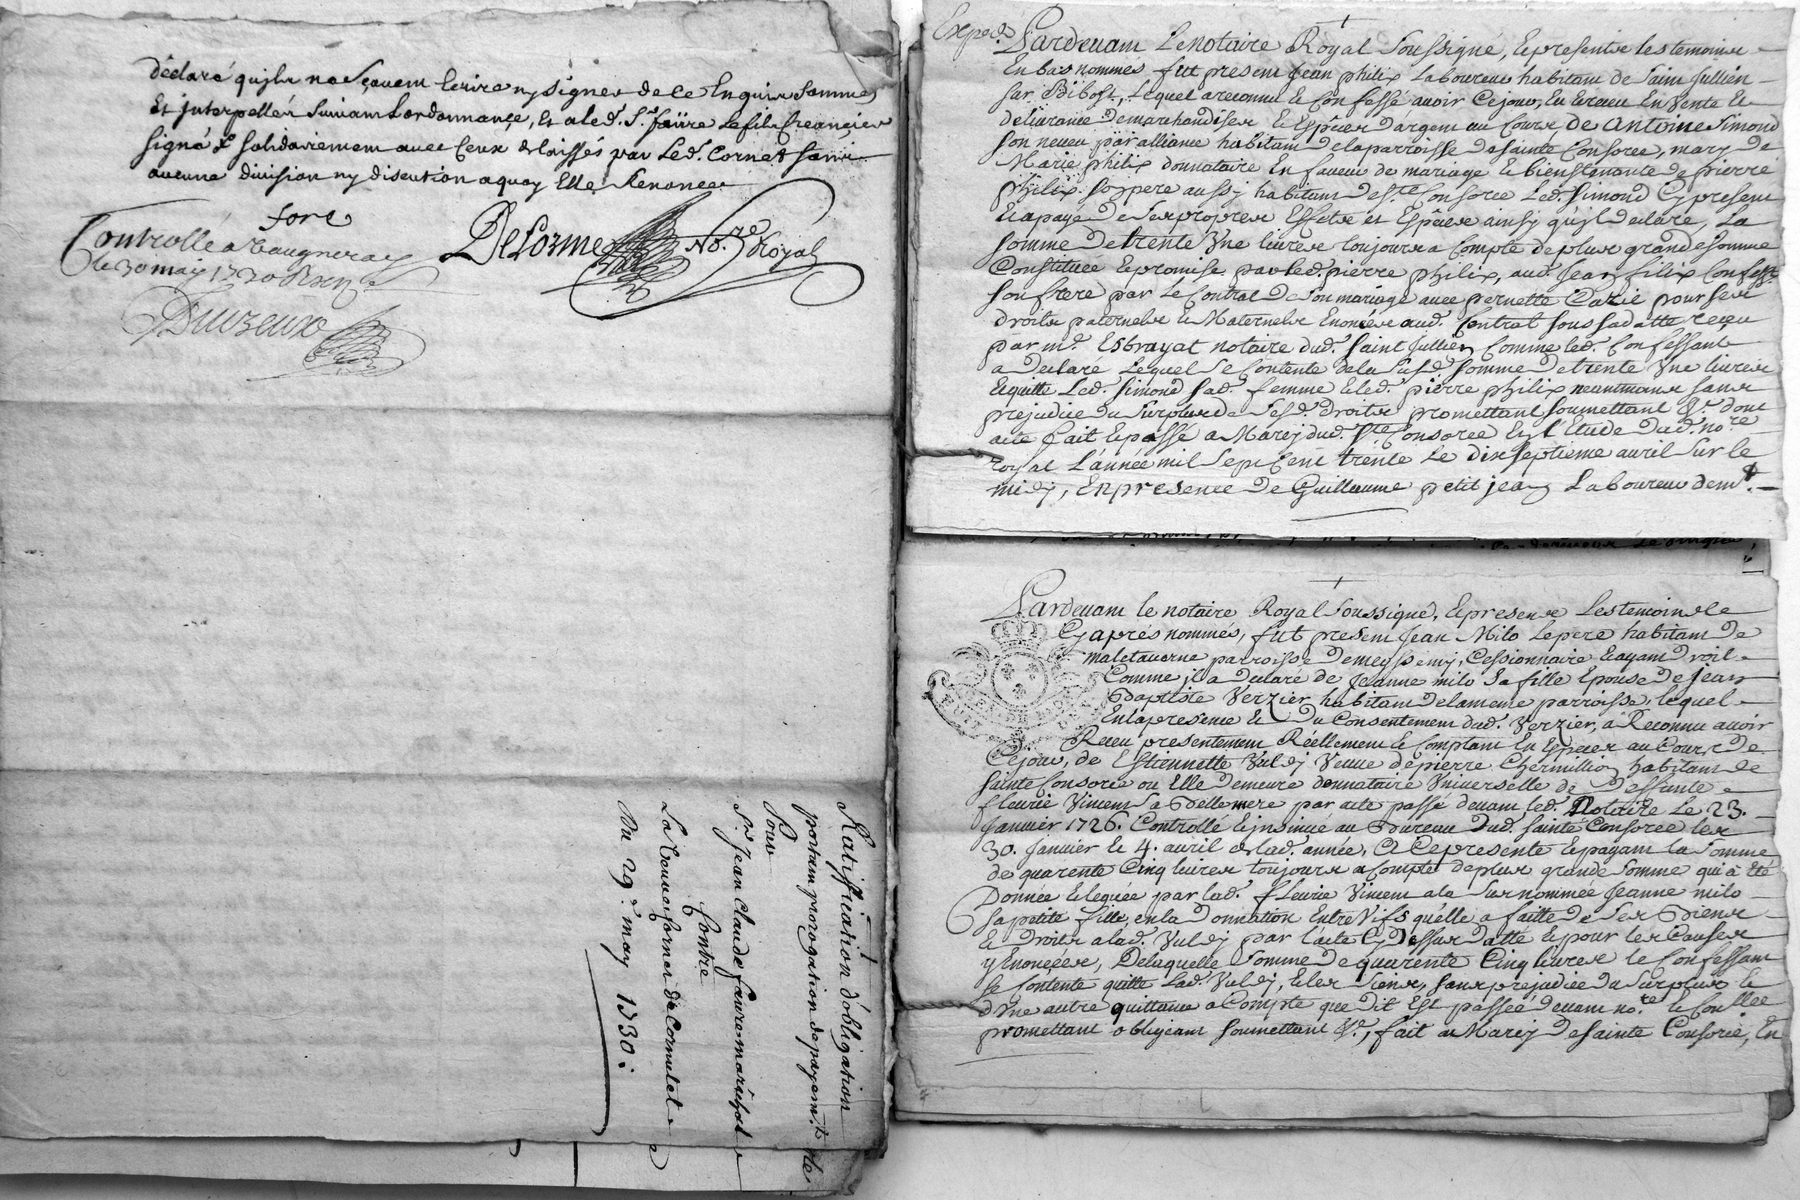 déclaré qu'ils ne sçavent écrire ny signer de ce Enquis sommes
Et interpellés suivant Lordonnance, Et a led. Sr. faüre le fils Creancier
signé & solidairement avec Ceux delaissés par Led. Cornet sans
aucune division ny discution a quoy Elle Renonce
fore
Controllé a Vaugneray
le 30 may 1730
DeLorme No.re Royal
Duvzeux
Ratiffication d'obligation
portant prorogation de payemt.
Pour
Sr. Jean Claude favre marechal
Contre
La
Du 29e. may 1730:
Exped.
Pardevant Le Notaire Royal Soussigné, Et presents les temoins
En bas nommés fut present Jean philix Laboureur habitant de Saint Jullien
sur Bibost, Lequel a reconnu & Confessé avoir Cejour, Eu & receu En Vente &
delivrance de marchandises & Espêces d'argent au Cours, de Antoine Simond
son neveu par alliance habitant de la parroisse de sainte Consorce, mary de
Marie philix donnataire En faveur de mariage & bienstenante de pierre
philix son pere aussy habitant de Ste. Consorce Led. Simond Cy present
& a payé de ses propres Effets et Espêces ainsy qu'il declare, La
somme de trente Une livres toujours a Compte de plus grande somme
Constituée & promise par led. pierre philix, aud. Jean filix Confesst.
son frere par Le Contrat de son mariage avec pernette Carie pour ses
droits paternels & Maternels Enoncés aud. Contrat sous sa datte reçeu
par me. Esbrayat notaire dud. saint Jullien Comme led. Confessant
a declaré Lequel se Contente de la susd. somme de trente Une livres
& quitte Led. Simond sad. femme & led. pierre philix neantmoins sans
prejudice du surplus de sesd. droits promettant soumettant &c. dont
acte fait & passé a Marcy dud. Ste. Consorce En l'Etude dud. nore.
royal L'année mil sept Cent trente Le dix septieme avril sur le
midy, En presence de Guillaume petit jean Laboureur demt.
Pardevant le notaire Royal Soussigné, & presence Les temoins
Cy aprés nommés, fut present Jean Milo Le pere habitant de
maletaverne parroisse de meyssemy, Cessionnaire & ayant droit
Comme il a declaré de Jeanne milo sa fille Epouse de Jean
Baptiste Verzier habitant de la meme parroisse, lequel
En la presence & du Consentement dud. Verzier, a Reconnu avoir
Receu presentement Réellement & Comptant En Espêces au Cours de
Cejour, de Estiennette Vuldy Veuve de pierre Chermillion habitant de
sainte Consorce ou Elle demeure donnataire Universelle de deffunte
fleurie Vincent sa Bellemere par acte passé devant led. Notaire Le 23.
Janvier 1726. Controllé & insinué au Bureau dud. sainte Consorce les
30. Janvier & 4. avril de lad. année, Cy presente & payant la somme
de quarente Cinq livres toujours a Compte de plus grande somme qui a été
Donnée & leguée par lad. fleurie Vincent a la surnommée Jeanne milo
sa petite fille, en la donnation Entre Vifs quelle a faitte de ses Biens
& Droits a lad. Vuldy par l'acte Cy Dessus datté & pour les Causes
y Enoncées, De laquelle somme de quarente Cinq livres le Confessant
se Contente quitte Lad. Vuldy, & les siens, sans prejudice du surplus &
d'une autre quittance a Compte que dit Est passée devant nore. & Conllee
promettant obligeant soumettant &c., fait a Marcy de sainte Consorce, En